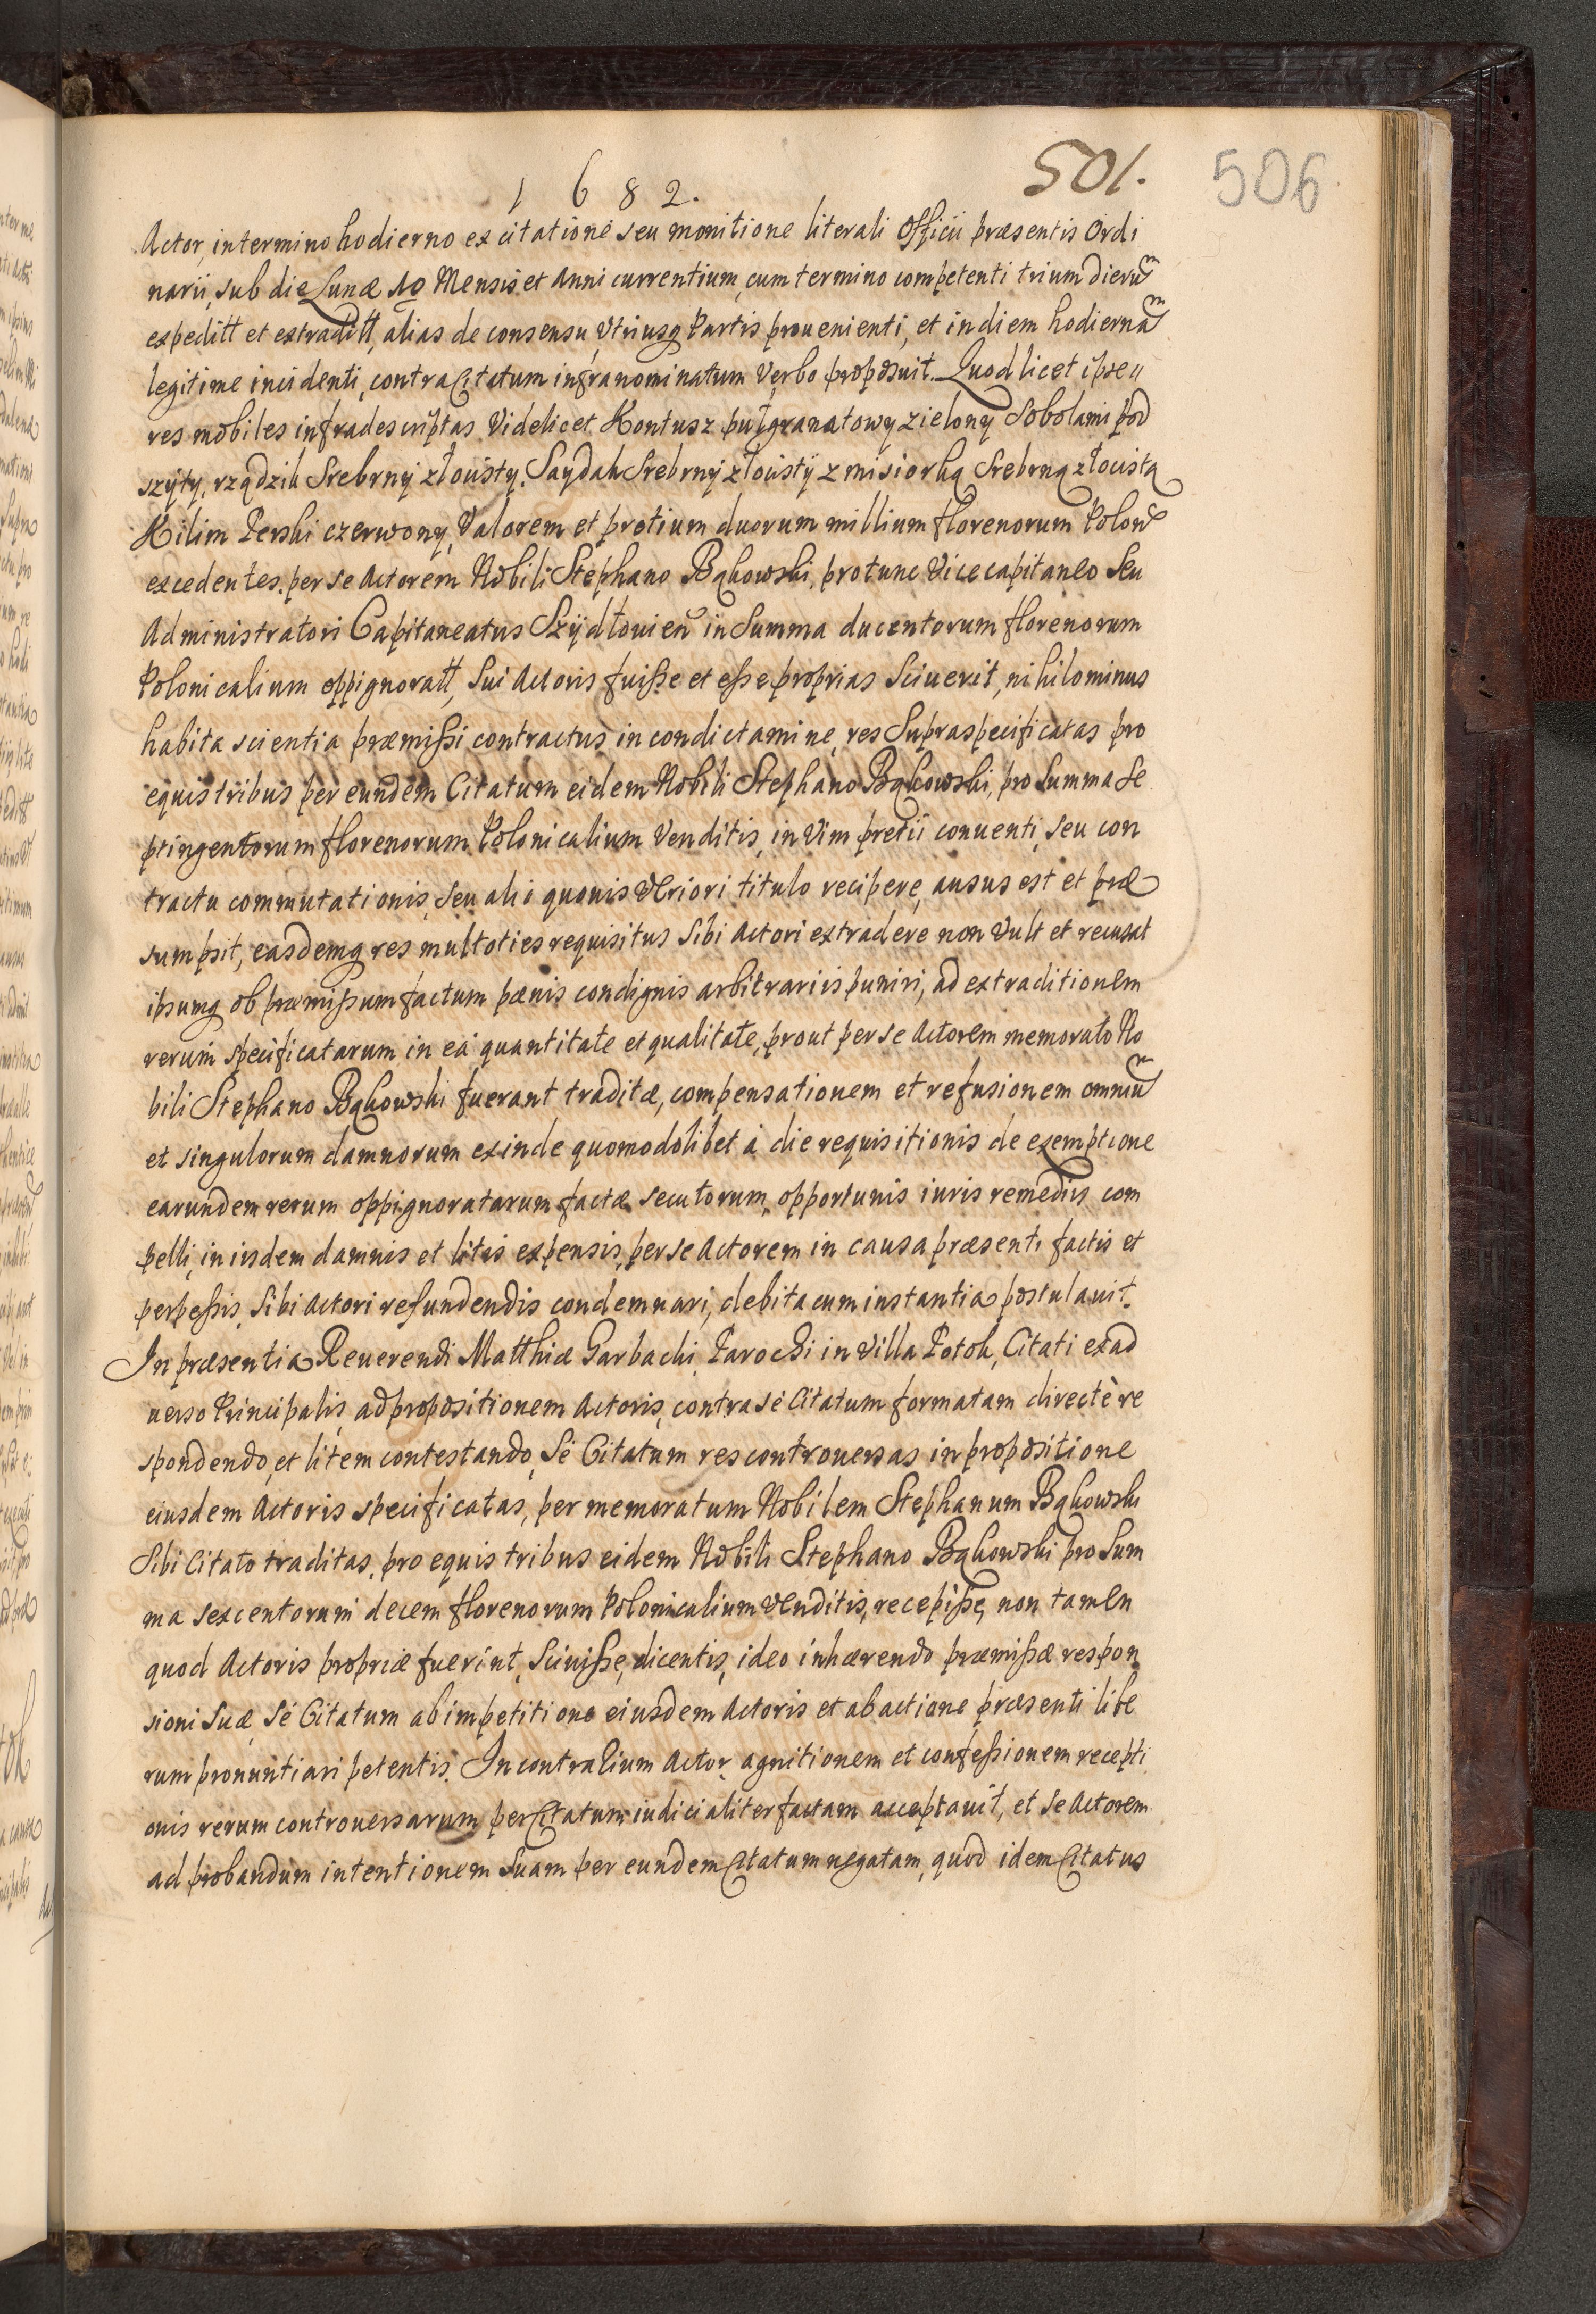 1682.
501.
506
Actor, in termino hodierno ex citatione seu monitione literali Officii præsentis Ordi
narii, sub die Lunæ 10 Mensis et Anni currentium, cum termino competenti trium dierum
expeditt et extraditt, alias de consensu Vtriusq Partis prouenienti, et in diem hodiernam
legitime incidenti, contra Citatum infranominatum Verbo proposuit. Quod licet ipse
res mobiles infradescriptas Videlicet Kontusz pułgranatowy zielony Sobolami pod
szyty, rządzik Srebrny złocisty, Saydak Srebrny złocisty z misiorką Srebrną złocistą
Kilim Perski czerwony, Valorem et pretium duorum millium florenorum Polon
excedentes, per se Actorem Nobili Stephano Bąkowski, protunc Vicecapitaneo Seu
Administratori Capitaneatus Szydłouien in Summa ducentorum florenorum
Polonicalium oppignoratt, Sui Actoris fuisse et esse proprias Sciuerit, nihilominus
habita scientia præmissi contractus in condictamine, res Supraspecificatas pro
equis tribus per eundem Citatum eidem Nobili Stephano Bąkowski, pro Summa Se
ptingentorum florenorum Polonicalium Venditis, in Vim pretii conuenti, seu con
tractu commutationis, seu alio quouis Vlteriori titulo recipere, ausus est et præ
sumpsit, easdemq res multoties requisitus Sibi Actori extradere non Vult et recusat
ipsumq ob præmissum factum pænis condignis arbitrariis puniri, ad extraditionem
rerum specificatarum in eá quantitate et qualitate, prout per se Actorem memorato No
bili Stephano Bąkowski fuerant traditæ, compensationem et refusionem omnium
et singulorum damnorum exinde quomodolibet á die requisitionis de exemptione
earundem rerum oppignoratarum factæ secutorum, opportunis iuris remediis com
pelli, in iisdem damnis et litis expensis, per se Actorem in causa præsenti factis et
perpessis, Sibi Actori refundendis condemnari, debita cum instantia postulauit.
In præsentia Reuerendi Matthiæ Garbacki, Parochi in Villa Potok, Citati ex ad
uerso Principalis, ad propositionem Actoris, contra sé Citatum formatam directè re
spondendo, et litem contestando, Sé Citatum res controuersas in propositione
eiusdem Actoris specificatas, per memoratum Nobilem Stephanum Bąkowski
Sibi Citato traditas, pro equis tribus eidem Nobili Stephano Bąkowski pro Sum
ma sexcentorum decem florenorum Polonicalium Venditis, recepisse, non tamen
quod Actoris propriæ fuerint, Sciuisse, dicentis, ideo inhærendo præmissæ respon
sioni Suæ Sé Citatum ab impetitione eiusdem Actoris et ab actione præsenti libe
rum pronuntiari petentis. In contrarium Actor, agnitionem et confessionem recepti
onis rerum controuersarum per Citatum iudicialiter factam acceptauit, et Se Actorem
ad probandum intentionem Suam per eundem Citatum negatam, quod idem Citatus